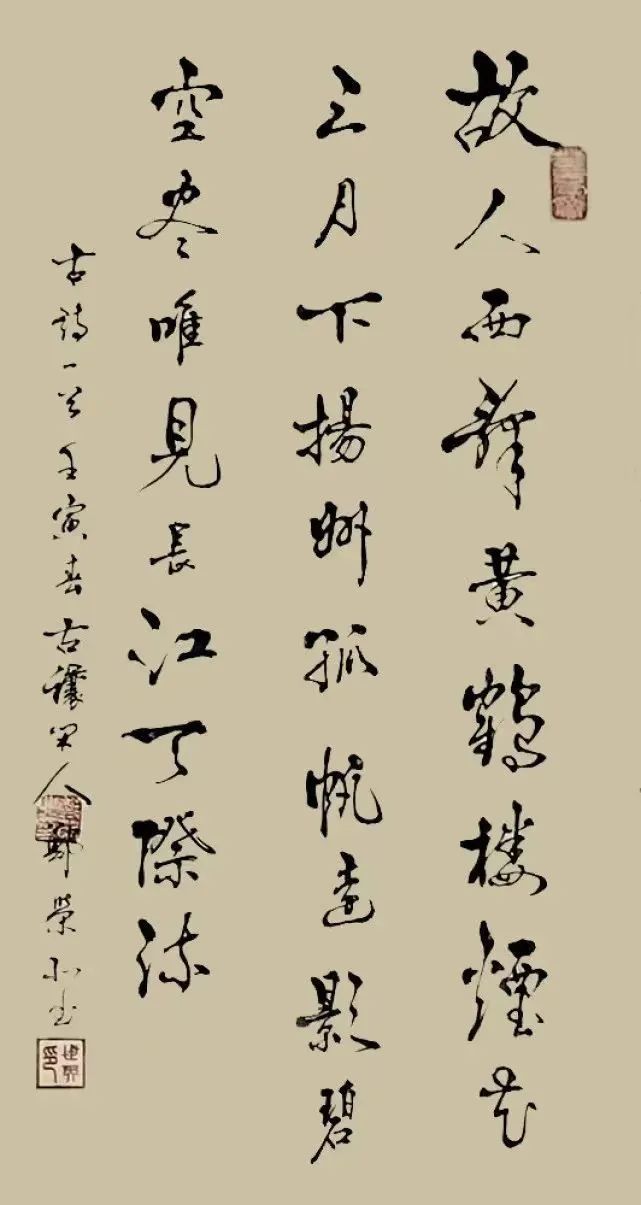 故人西辭黃鶴樓煙花
三月下揚州孤帆遠影碧
空盡唯見長江天際流
古詩一首壬寅春古穰閑人鄭榮書